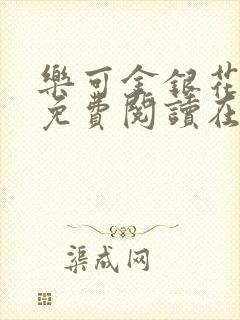 樂可金銀花
免費閱讀在
渠成网